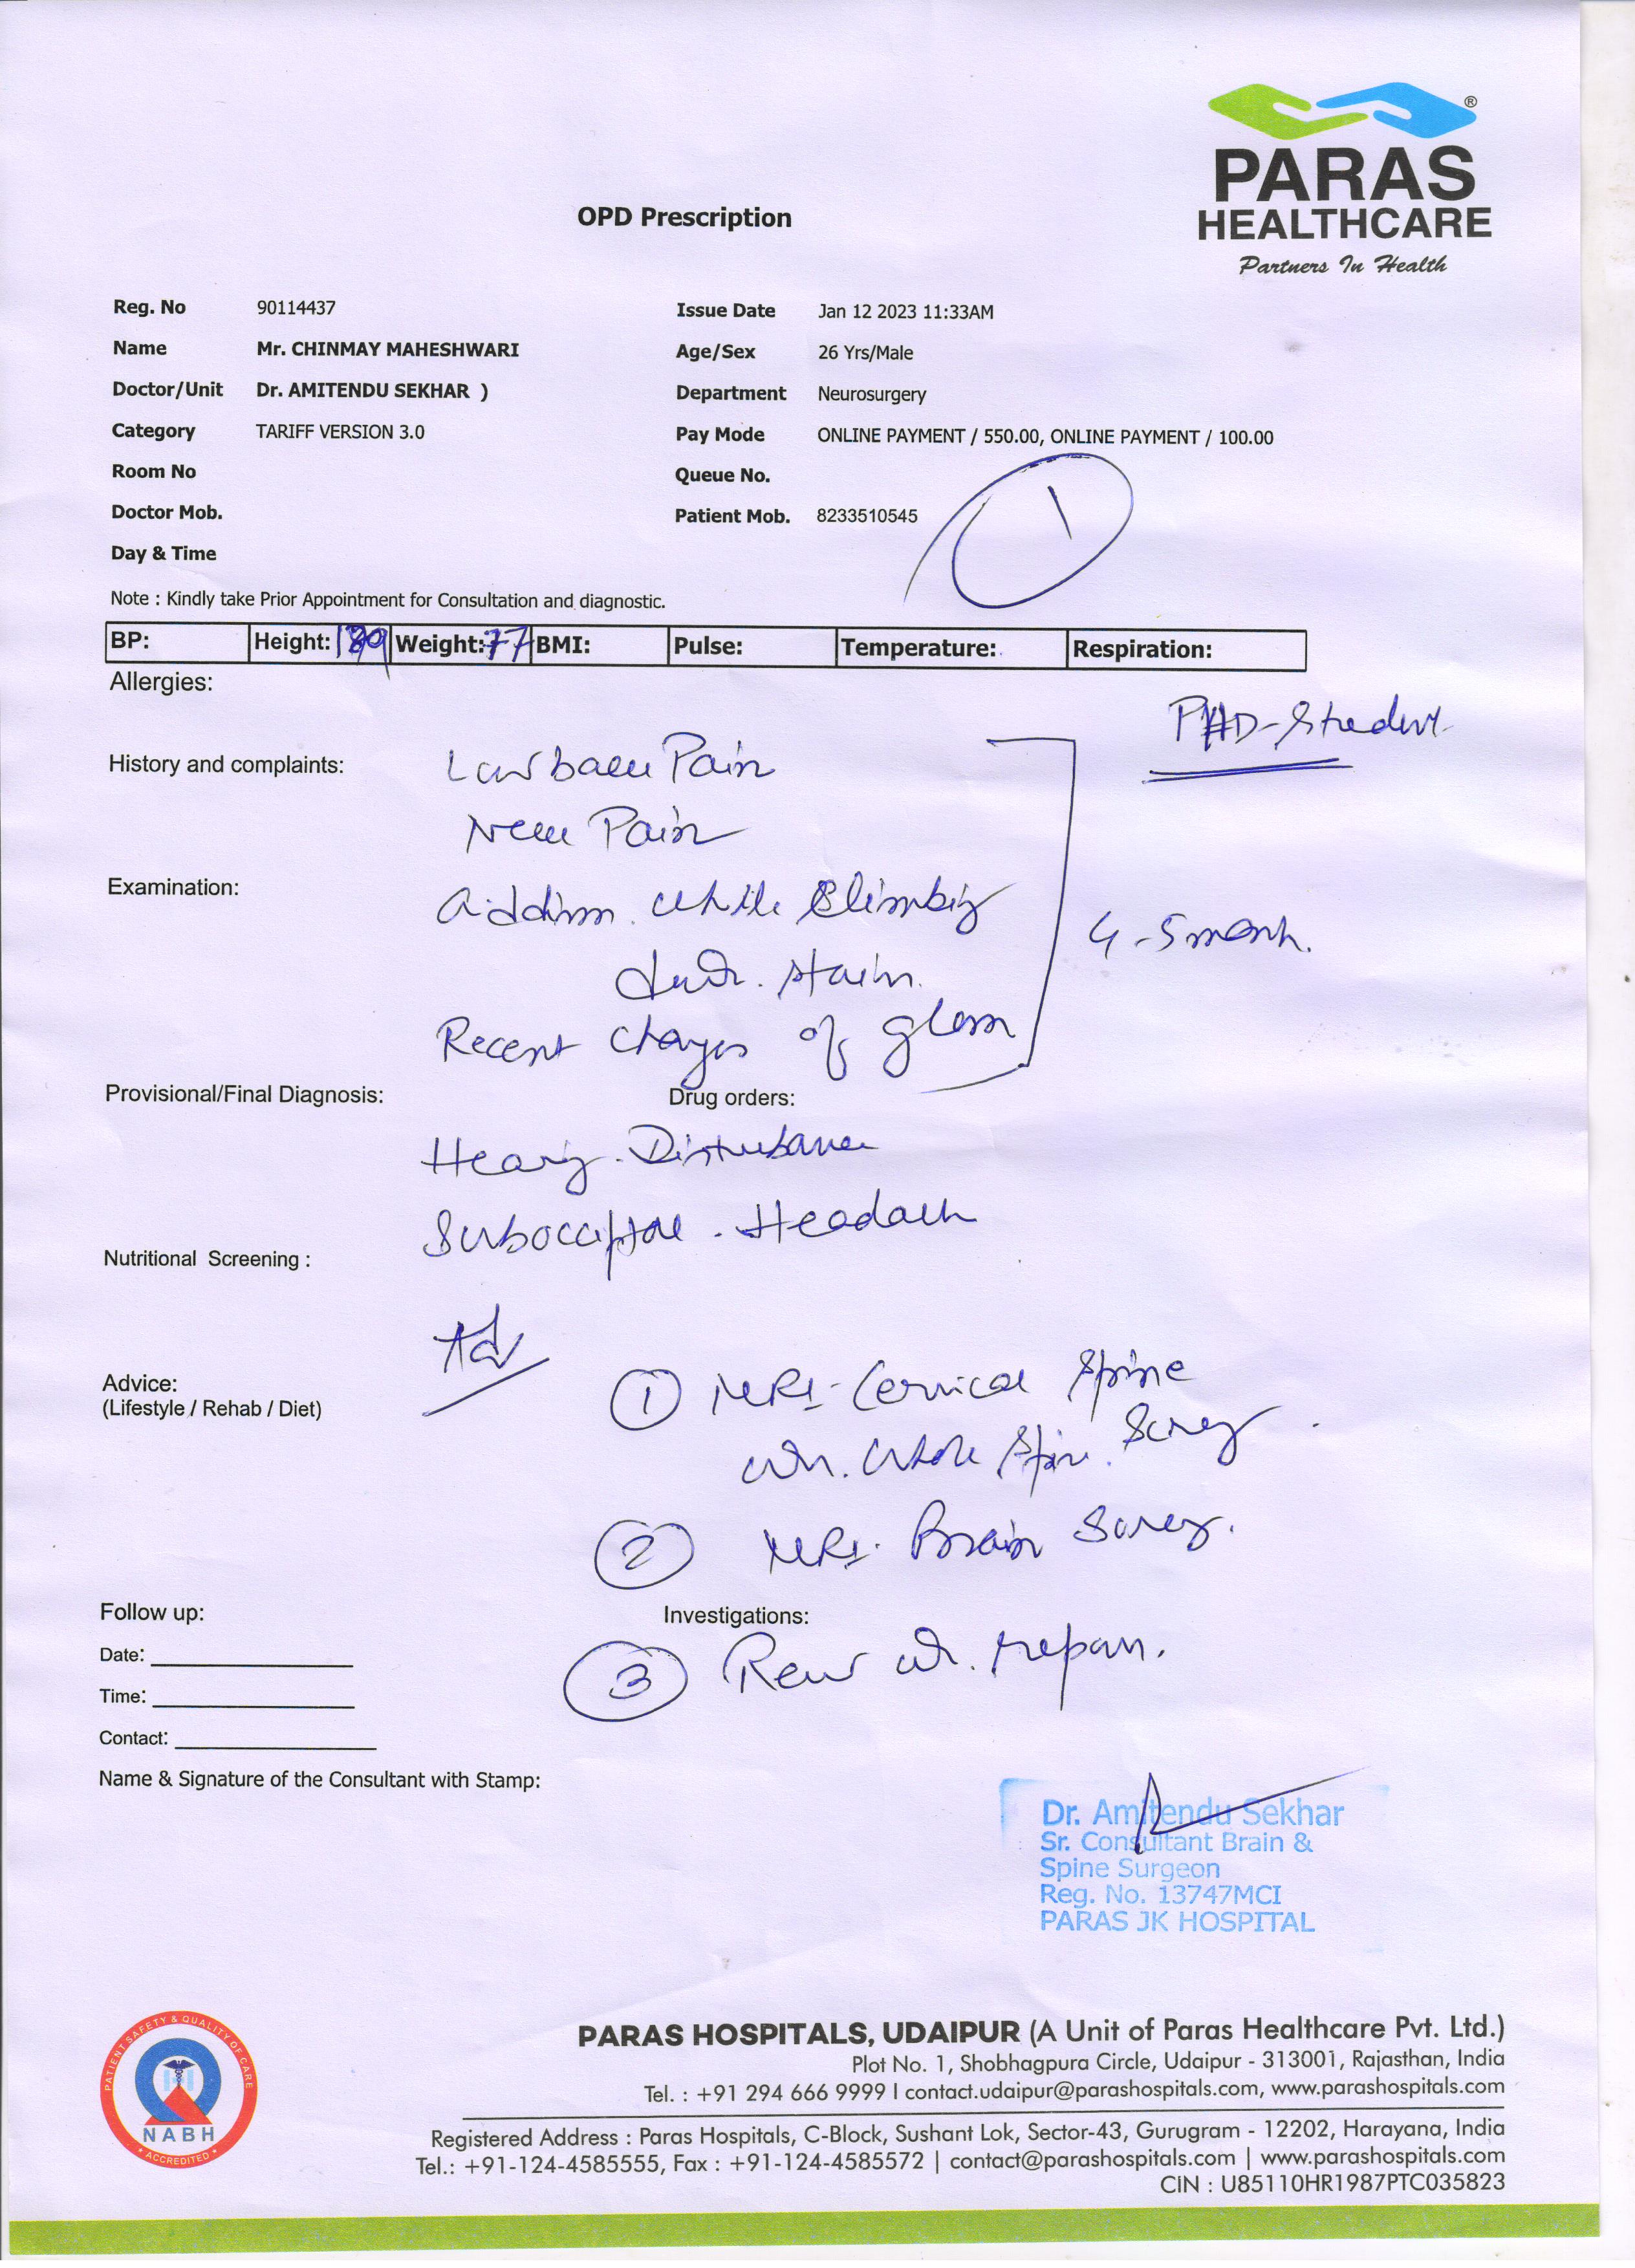 ®
PARAS
HEALTHCARE
Partners In Health
OPD Prescription
Reg. No 90114437 Issue Date Jan 12 2023 11:33AM
Name Mr. CHINMAY MAHESHWARI Age/Sex 26 Yrs/Male
Doctor/Unit Dr. AMITENDU SEKHAR ) Department Neurosurgery
Category TARIFF VERSION 3.0 Pay Mode ONLINE PAYMENT / 550.00, ONLINE PAYMENT / 100.00
Room No Queue No.
Doctor Mob. Patient Mob. 8233510545
1
Day & Time
Note : Kindly take Prior Appointment for Consultation and diagnostic.
BP: Height: 189 Weight: 77 BMI: Pulse: Temperature: Respiration:
Allergies:
PHD-Student
History and complaints: Low back Pain
Neck Pain
Examination: while climbing
4-5 month.
Recent changes of glass
Provisional/Final Diagnosis: Drug orders:
Hearing Disturbance
Suboccipital Headach
Nutritional Screening :
Adv
Advice:
(Lifestyle / Rehab / Diet)
1 MRI-Cervical Spine
whole Spine
2 MRI. Brain
Follow up: Investigations:
3
Date:
Time:
Contact:
Name & Signature of the Consultant with Stamp:
Dr. Amitendu Sekhar
Sr. Consultant Brain &
Spine Surgeon
Reg. No. 13747MCI
PARAS JK HOSPITAL
PATIENT SAFETY & QUALITY OF CARE
NABH
• ACCREDITED •
PARAS HOSPITALS, UDAIPUR (A Unit of Paras Healthcare Pvt. Ltd.)
Plot No. 1, Shobhagpura Circle, Udaipur - 313001, Rajasthan, India
Tel. : +91 294 666 9999 I contact.udaipur@parashospitals.com, www.parashospitals.com
Registered Address : Paras Hospitals, C-Block, Sushant Lok, Sector-43, Gurugram - 12202, Harayana, India
Tel.: +91-124-4585555, Fax : +91-124-4585572 | contact@parashospitals.com | www.parashospitals.com
CIN : U85110HR1987PTC035823